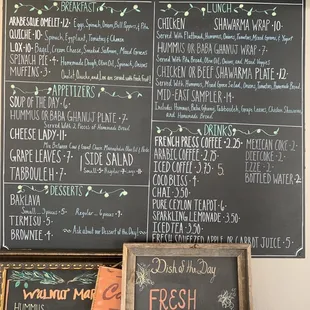 BREAKFAST
ARABESQUE OMELET · 12 - Eggs, Spinach, Onion, Bell Peppers & Feta
QUICHE · 10 - Spinach, Eggplant, Tomatoes & Onion
LOX · 10 - Bagel, Cream Cheese, Smoked Salmon, Mixed Greens
SPINACH PIE · 4 - Homemade Dough, Olive Oil, Spinach, Onion & Spices
MUFFINS · 3
APPETIZERS
SOUP OF THE DAY · 6
HUMMUS OR BABA GHANUJ PLATE · 7
Served With 2 Pieces of Homemade Bread
CHEESE LADY · 11
GRAPE LEAVES · 7
TABBOULEH · 7
SIDE SALAD
Small · 5 Regular ·
DESSERTS
BAKLAVA
Small... 3 pieces · 5 Regular... 6 pieces · 9
TIRMISU · 5
BROWNIE · 4
Ask About our Dessert of the Day
LUNCH
CHICKEN SHAWARMA WRAP · 10
Served With Flatbread, Hummus, Onions, Tomatoes, Mixed Greens, & Yogurt
HUMMUS OR BABA GHANUJ WRAP · 7
Served With Pita Bread, Olive Oil, Onions, and Mixed Veggies
CHICKEN OR BEEF SHAWARMA PLATE · 12
Served With Hummus, Mixed Green Salad, Onions, Tomatoes, Homemade Bread
MID-EAST SAMPLER · 14
Includes Hummus, Baba Ghanuj, Tabbouleh, Grape Leaves, Chicken Shawarma
and Homemade Bread
DRINKS
FRENCH PRESS COFFEE · 2.75
ARABIC COFFEE · 2.75
ICED COFFEE · 3.75
COCO BLISS · 4
CHAI · 3.50
PURE CEYLON TEAPOT · 6
SPARKLING LEMONADE · 3.50
ICED TEA · 3.50
FRESH SQUEEZED APPLE OR CARROT JUICE · 5
MEXICAN COKE · 2
DIET COKE · 2
BOTTLED WATER · 2
Dish of the Day
FRESH
HUMMUS